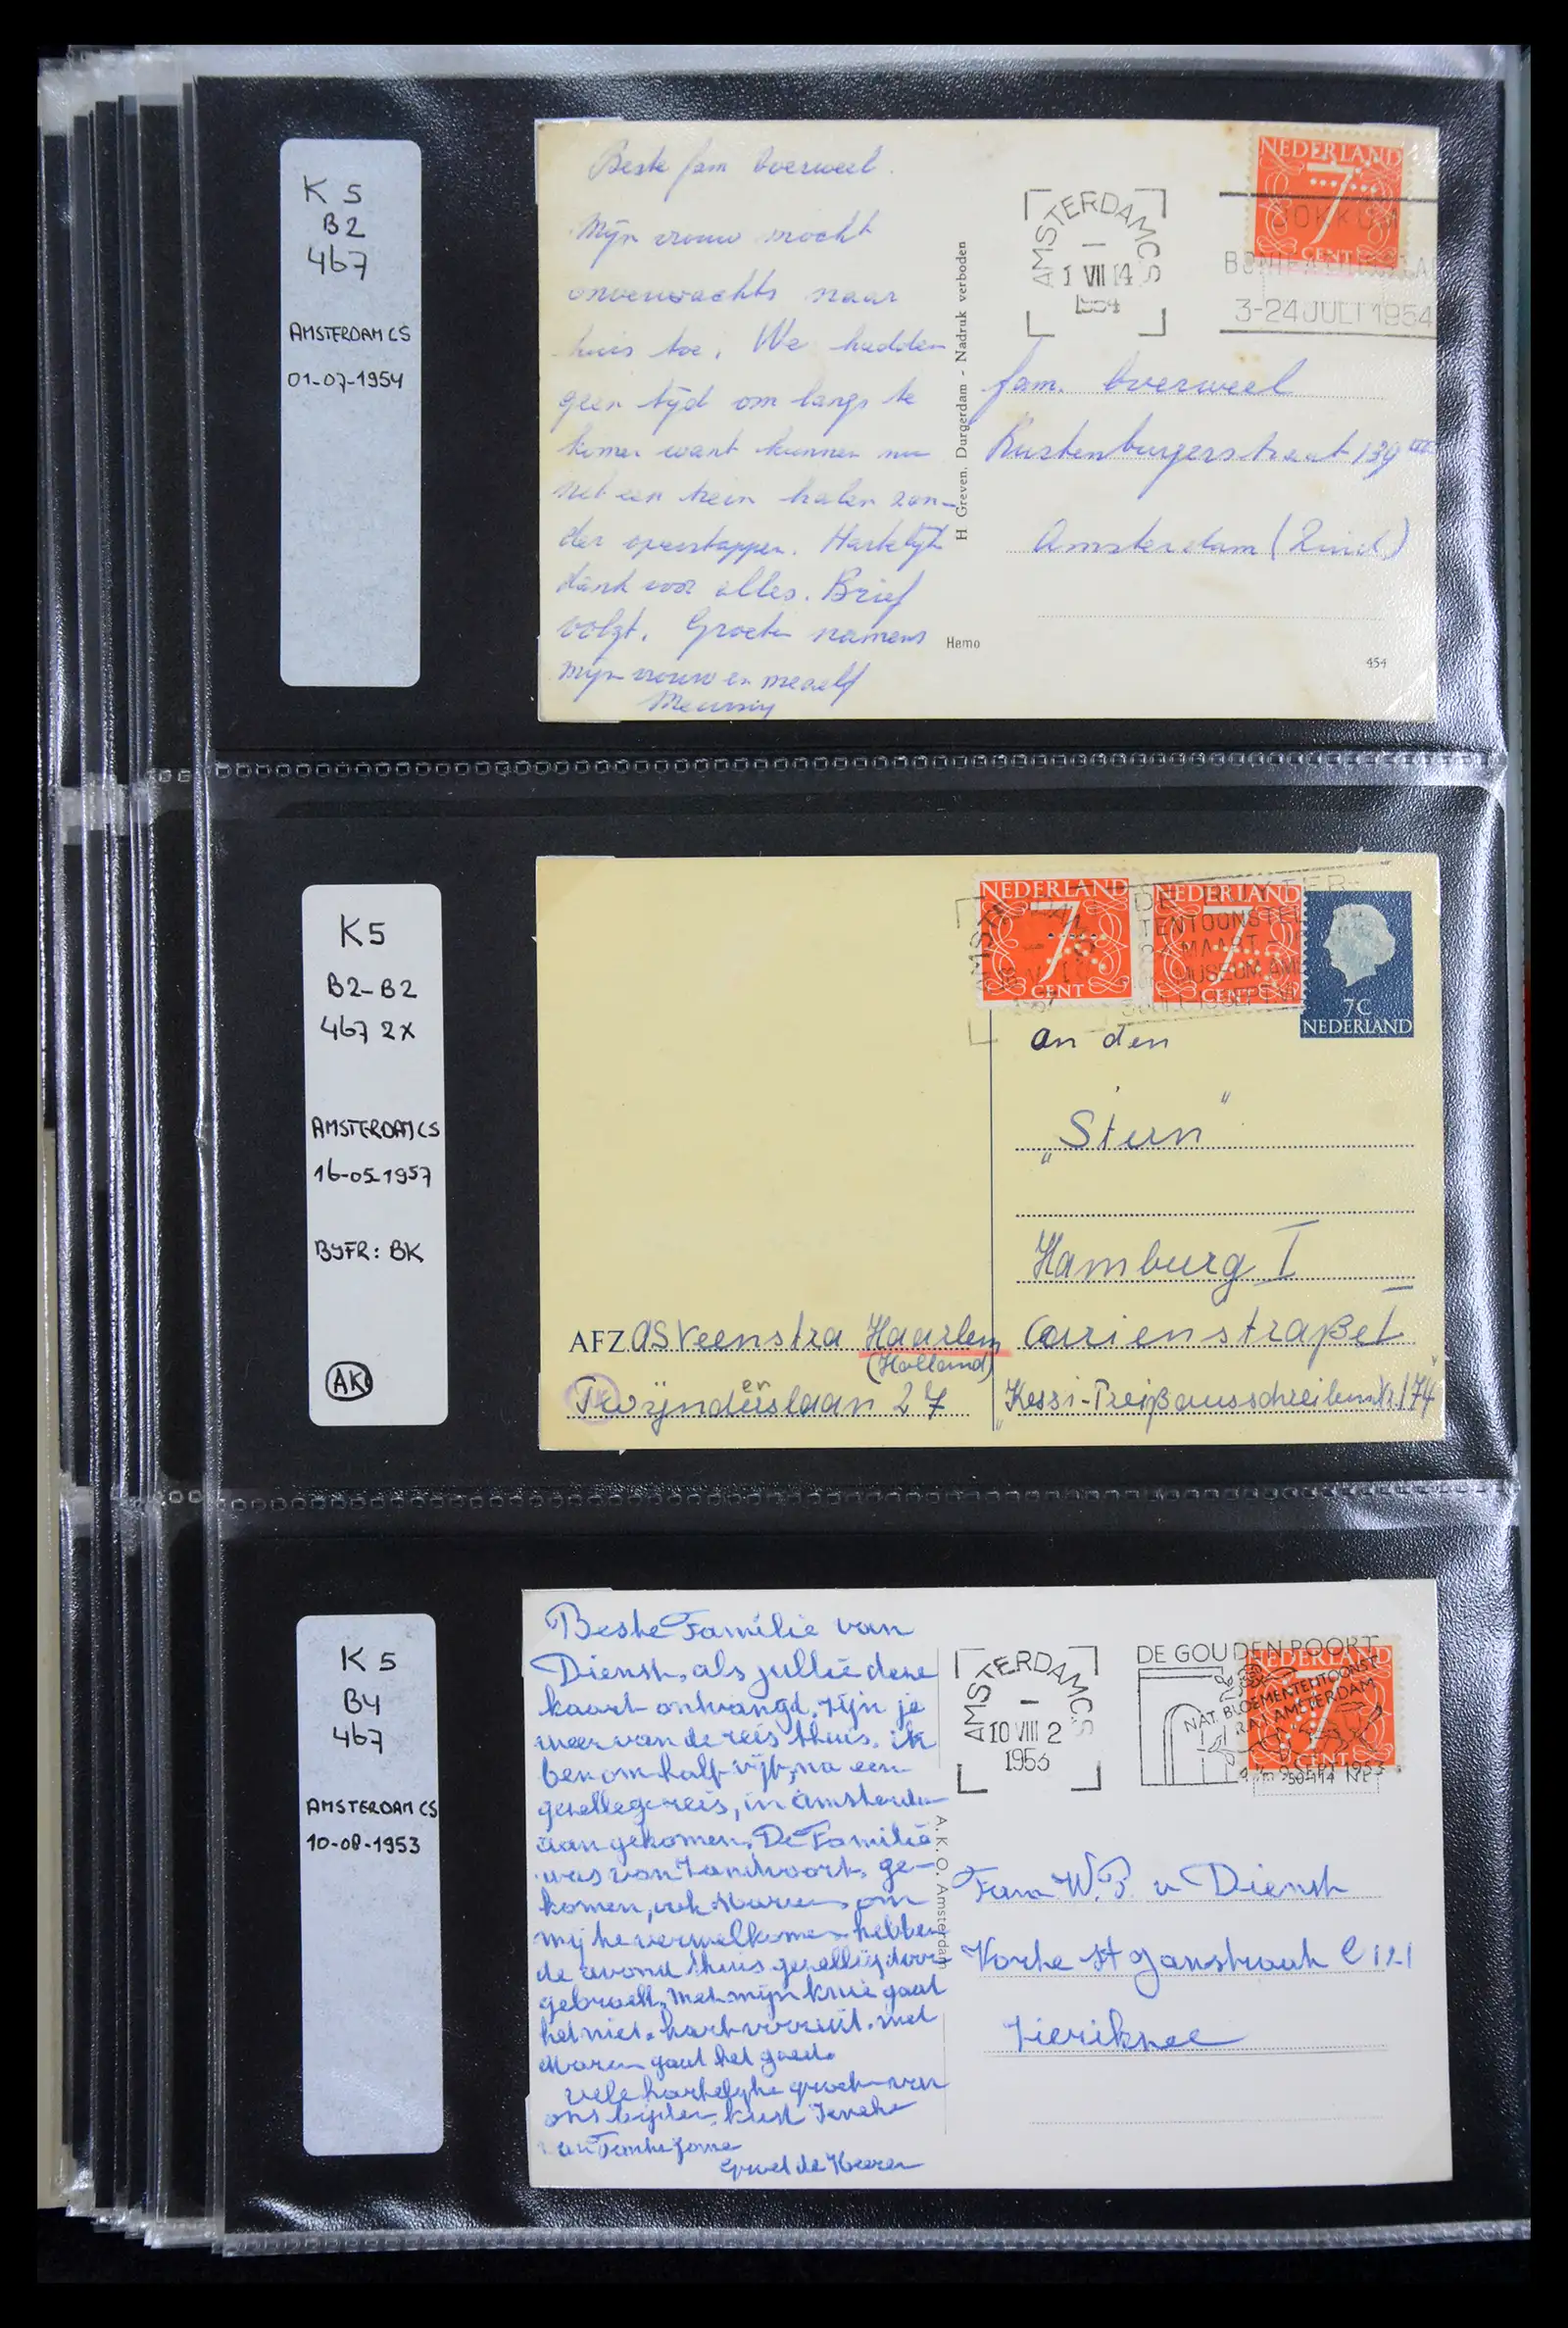 K 5
B2
467
AMSTERDAM CS
01-07-1954
Beste fam Overweel.
Mijn vrouw mocht
onverwachts naar
huis toe. We hadden
geen tijd om langs te
komen want kunnen nu
net een trein halen zon-
der overstappen. Hartelijk
dank voor alles. Brief
volgt. Groeten namens
mijn vrouw en mezelf
H. Greven, Durgerdam - Nadruk verboden
Hemo
AMSTERDAM CS
1 VII 14
1954
NEDERLAND
7
CENT
DOKKUM
3-24 JULI 1954
fam. Overweel
Rustenburgerstraat 139 III
Amsterdam (Zuid)
454
K5
B2-B2
467 2X
AMSTERDAM CS
16-05-1957
BYFR: BK
AK
NEDERLAND
7
CENT
NEDERLAND
7
CENT
DE RUYTER-
TENTOONSTEL
MAART
MUSEUM AM
7C
NEDERLAND
an den
"Stern"
Hamburg I
Curienstraße 1
"Kessi-Preißausschreiben Nr. 174"
AFZ AS Veenstra Haarlem
(Holland)
Twijnderslaan 27
er
K 5
B4
467
AMSTERDAM CS
10-08-1953
Beste Familie van
Dienst, als jullie deze
kaart ontvangt, zijn je
weer van de reis thuis. ik
ben om half vijf, na een
gezellege reis, in Amsterdam
aangekomen. De Familie
was van Zandvoort ge-
komen, ook Maren om
mij te verwelkomen hebben
de avond thuis gezellig door
gebracht. Met mijn knie gaat
het niet hard vooruit. met
Maren gaat het goed.
vele hartelijke groeten van
ons beiden, kust Ineke
van Tante Jonna
Groet de Heeren
A. K. O. Amsterdam
AMSTERDAM CS
10 VIII 2
1953
DE GOUDEN POORT
NAT. BLOEMENTENTOONST
R.A.I. AMSTERDAM
NEDERLAND
7
CENT
4 t/m 9 SEPT 1953
Fam W. P. v Dienst
Korte St Janstraat C 121
Zierikzee